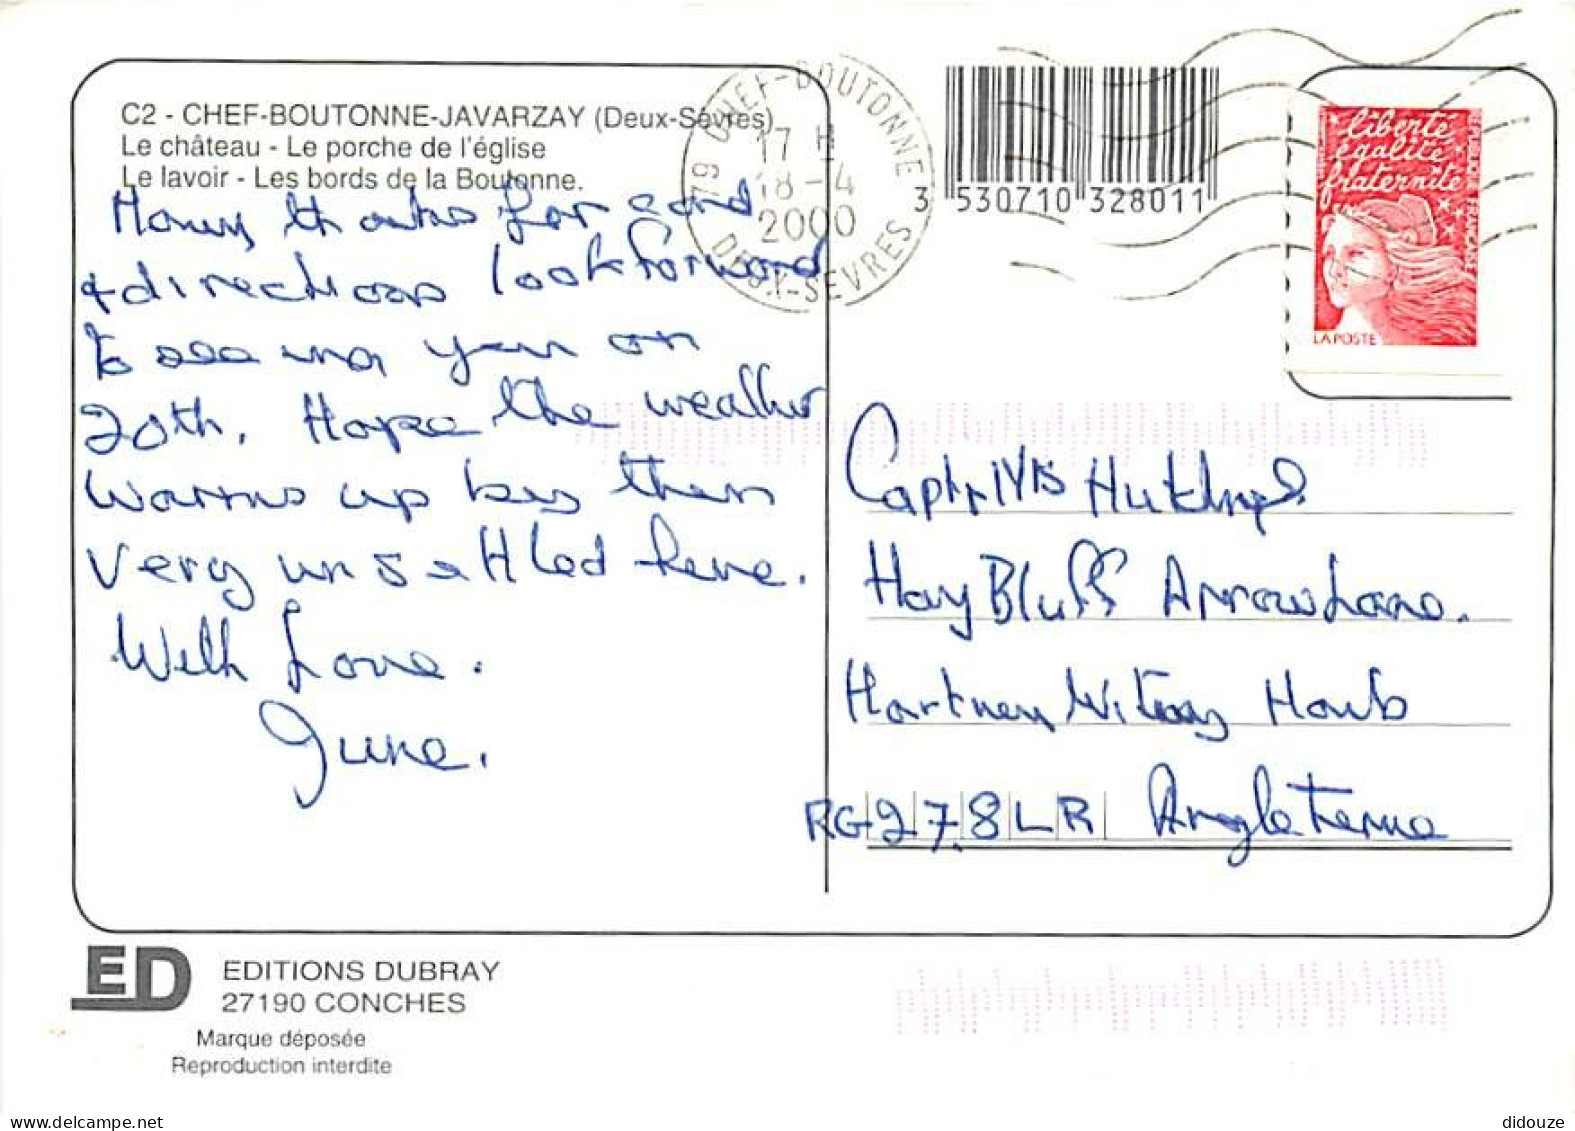 C2 - CHEF-BOUTONNE-JAVARZAY (Deux-Sèvres)
Le château - Le porche de l'église
Le lavoir - Les bords de la Boutonne.
Many thanks for card
& directions look forward
to seeing you on
20th. Hope the weather
warms up by then
very unsettled here.
With Love.
June.
79 CHEF-BOUTONNE
17 H
18-4
2000
DEUX-SEVRES
3 530710 328011
liberté
égalité
fraternité
REPUBLIQUE FRANÇAISE
LA POSTE
Capt
Hay Bluff Arrow Lane.
Hartney Witney Hants
RG27.8LR Angleterre
ED
EDITIONS DUBRAY
27190 CONCHES
Marque déposée
Reproduction interdite
didouze